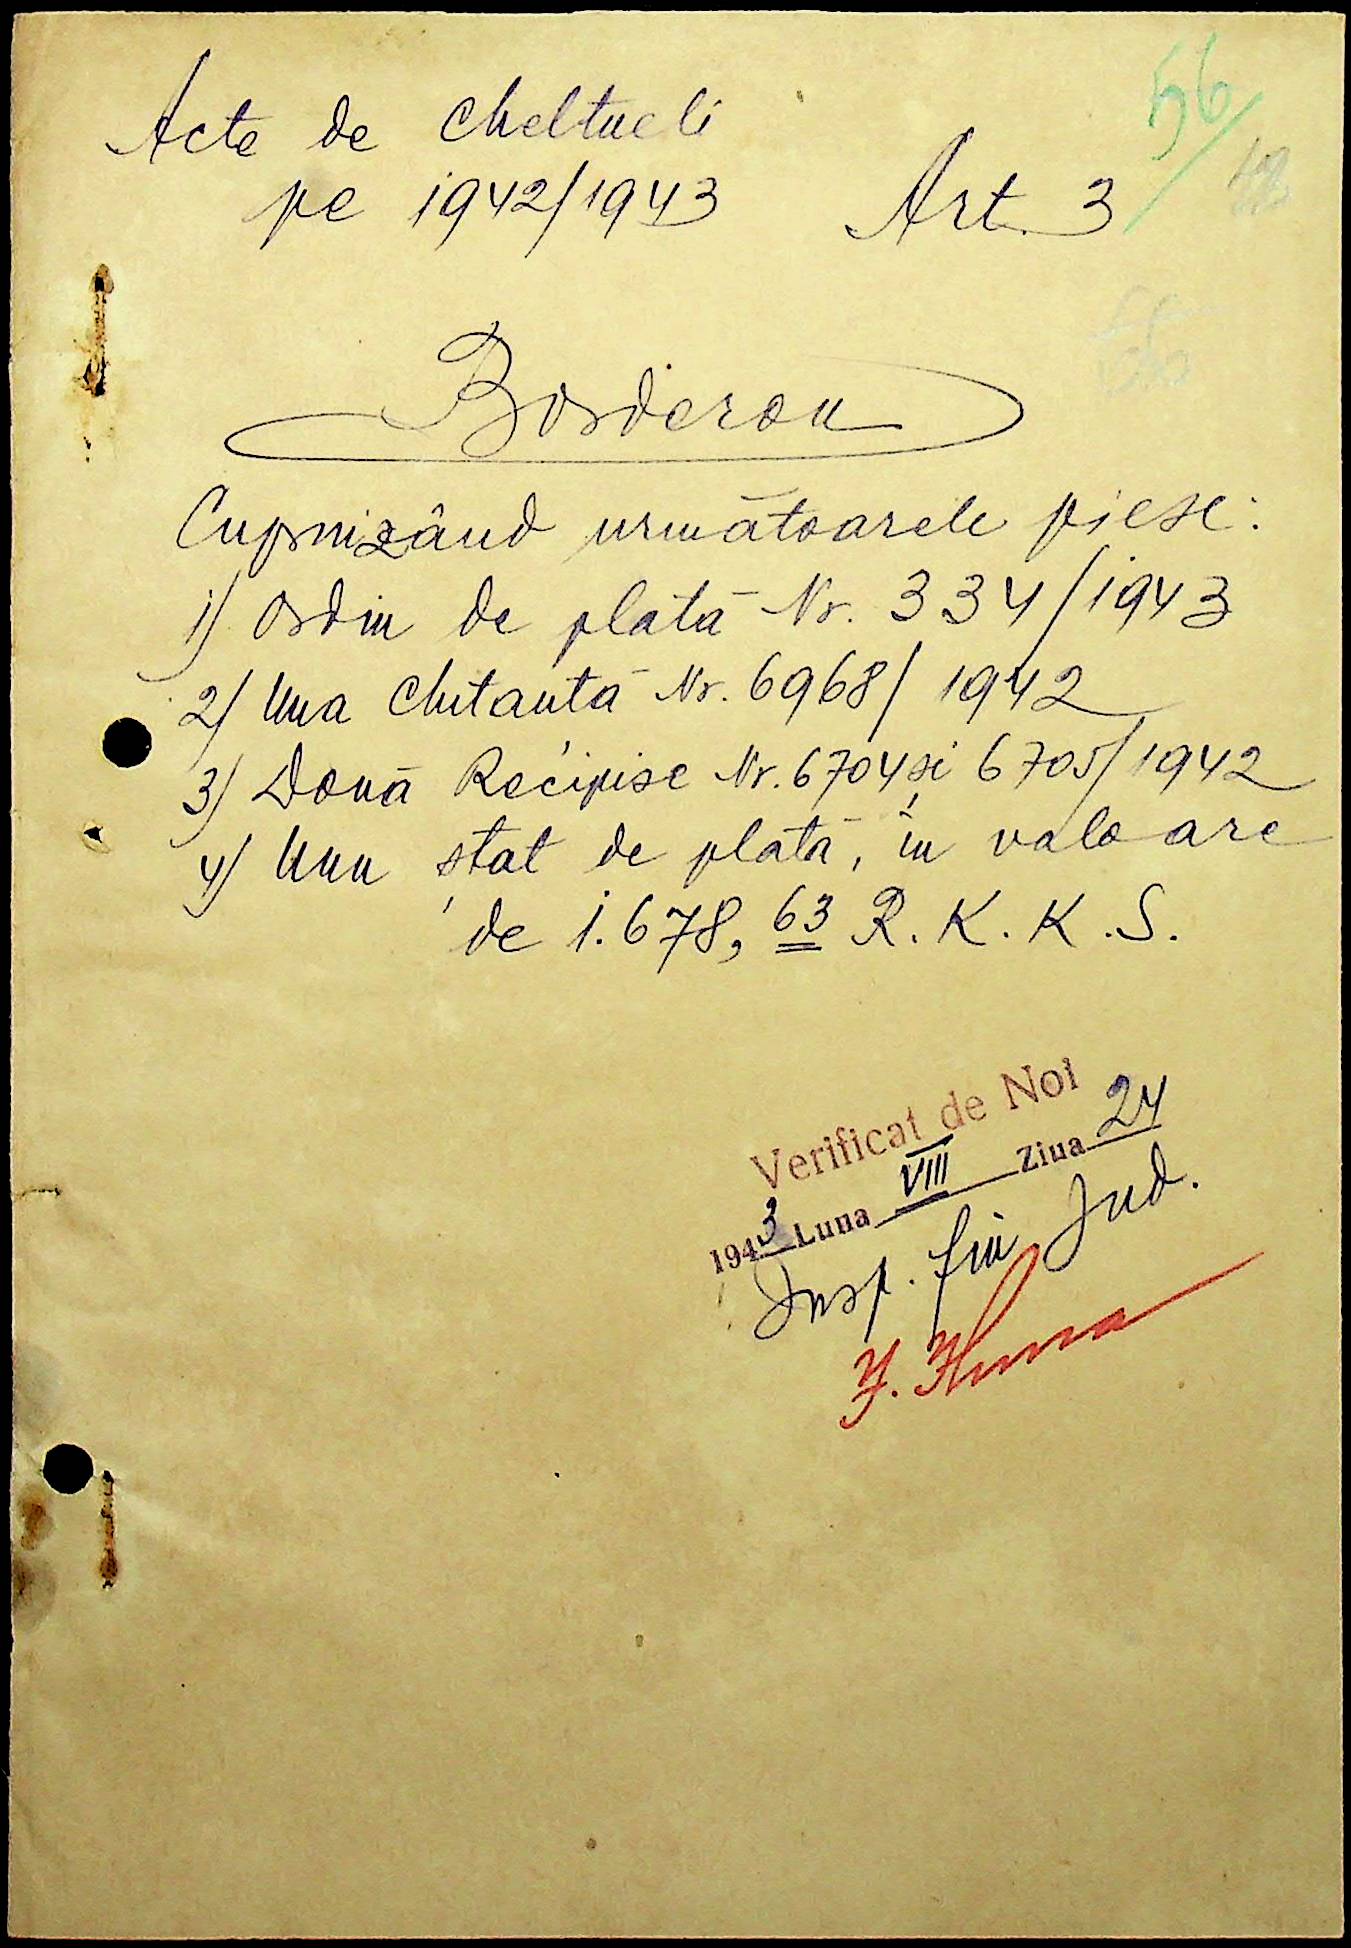 56
Acte de Cheltueli
pe 1942/1943 Art. 3
Borderou
Cuprnizând următoarele piese:
1) Ordin de plată Nr. 334/1943
2) Una Chitantă Nr. 6968/1942
3) Două Recipise Nr. 6704 și 6705/1942
4) Unu stat de plată, în valoare
de 1.678,63 R.K.K.S.
Verificat de Noi
1943 Luna VIII Ziua 24
Insp. fin Jud.